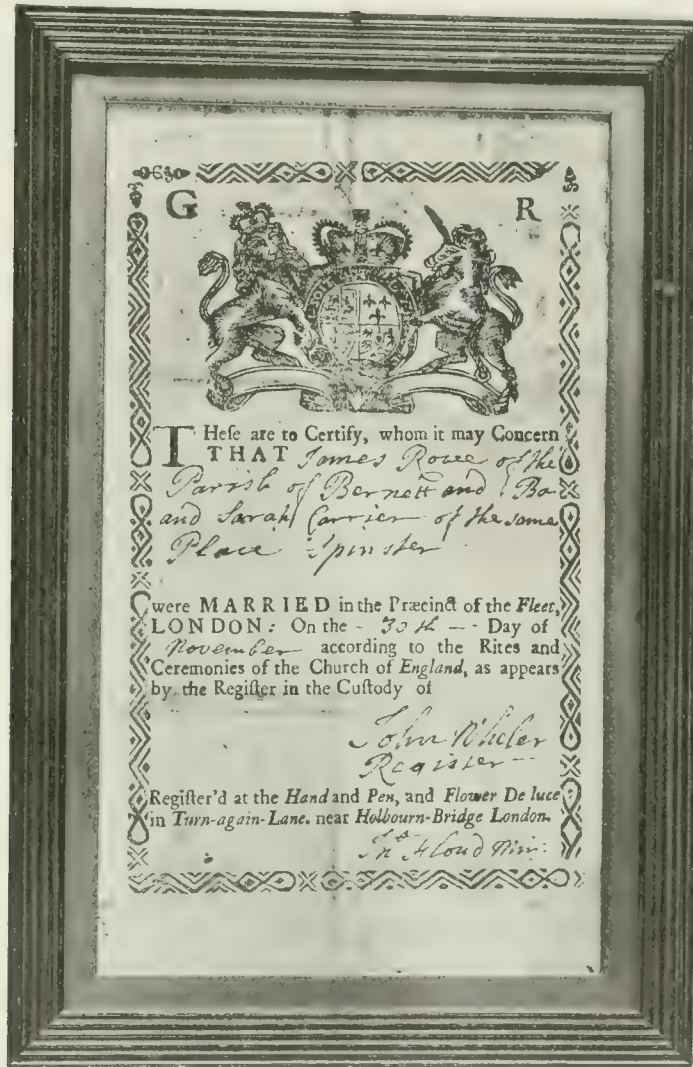 G R
THeſe are to Certify, whom it may Concern
THAT James Rowe of the
Parish of Bernett and Ba
and Sarah Carrier of the same
Place Spinster
were MARRIED in the Præcinct of the Fleet,
LONDON: On the - 30th - - Day of
November according to the Rites and
Ceremonies of the Church of England, as appears
by the Regiſter in the Cuſtody of
John Wheler
Register
Regiſter'd at the Hand and Pen, and Flower De luce
in Turn-again-Lane. near Holbourn-Bridge London.
Jno Floud Min: